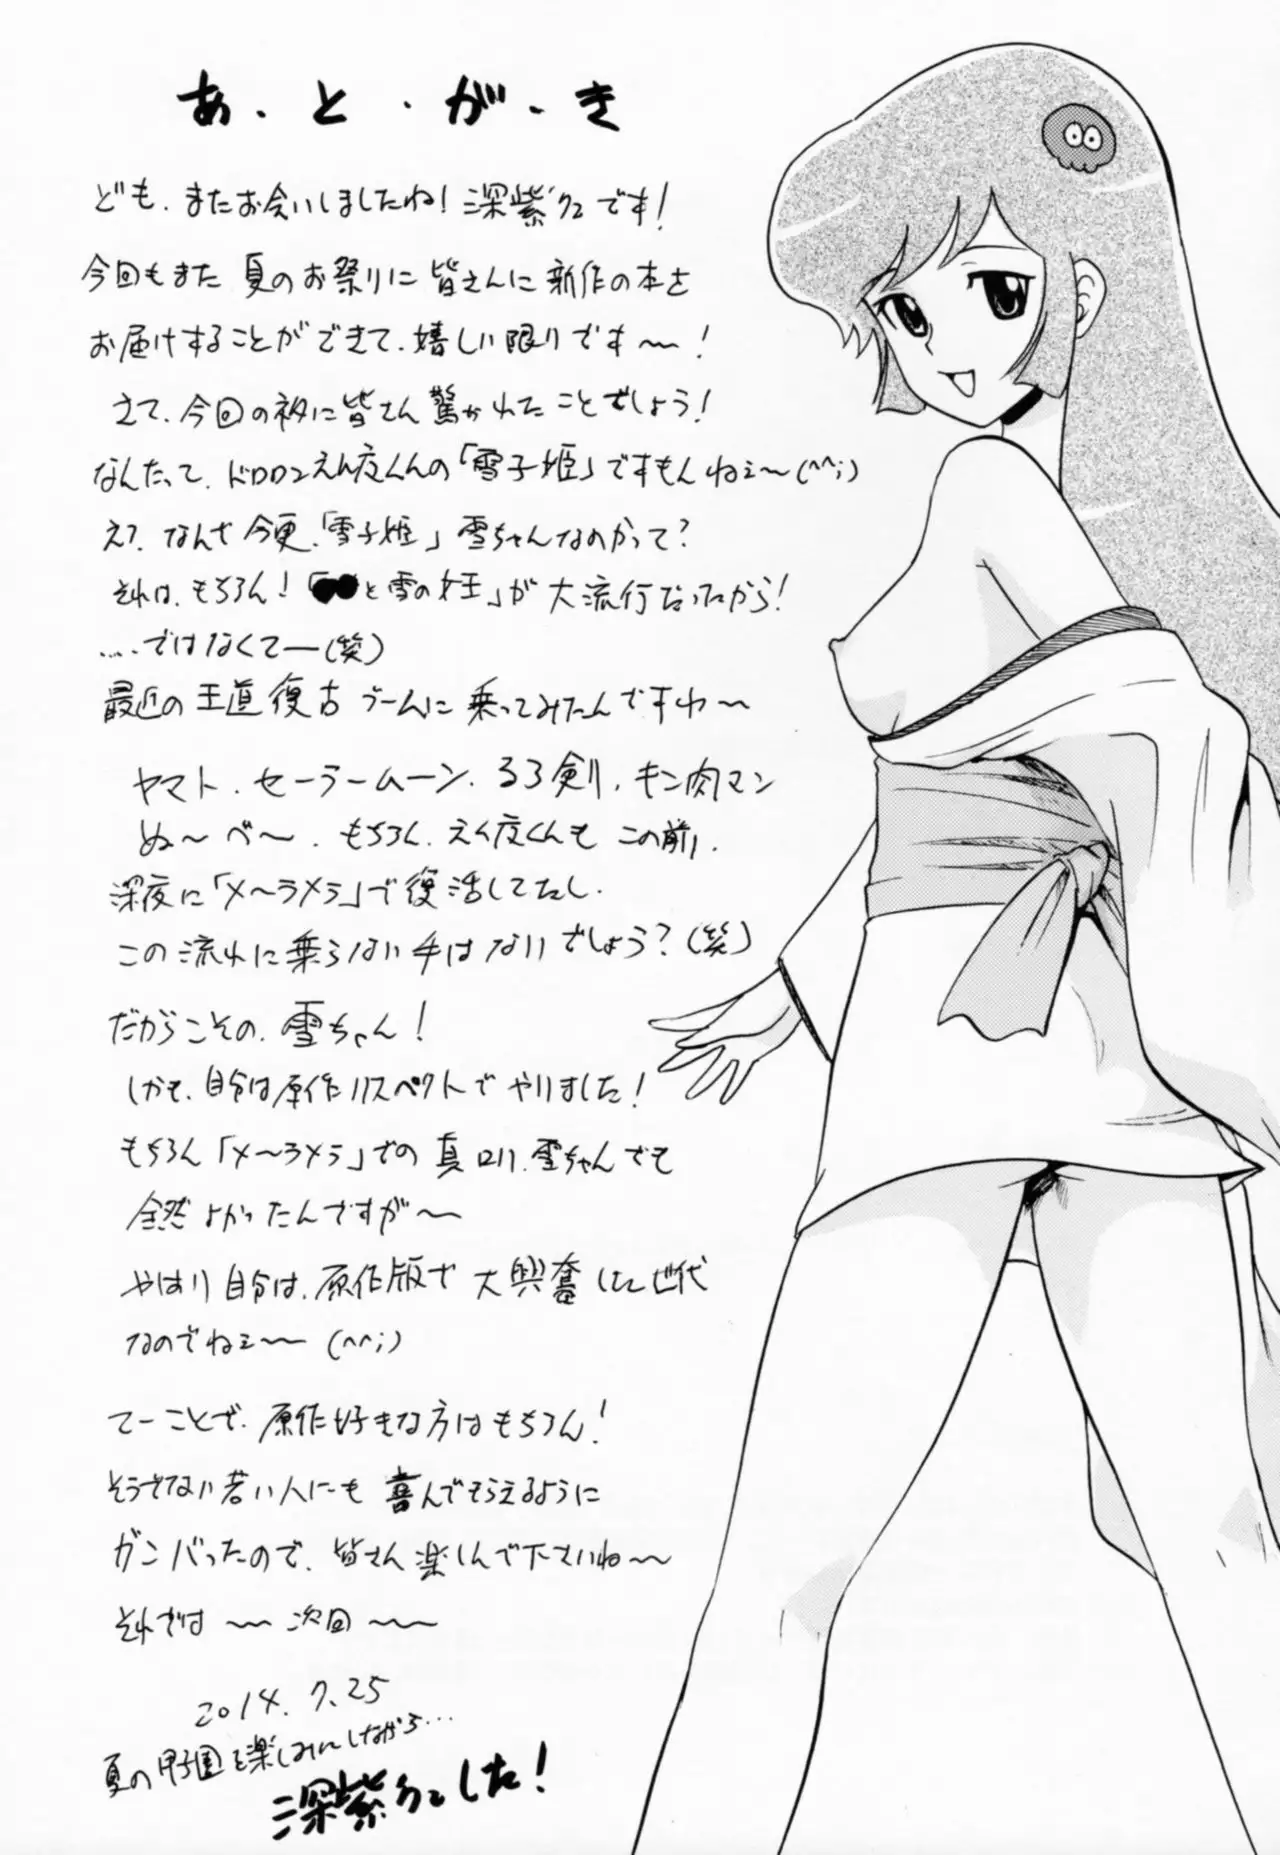 あ・と・が・き
ども、またお会いしましたね！深紫クニです！
今回もまた 夏のお祭りに 皆さんに 新作の本を
お届けすることができて、嬉しい限りです～！
さて、今回のネタに皆さん驚かれたことでしょう！
なんたって、ドロロンえん魔くんの「雪子姫」ですもんねェ～(^^;)
え？、なんで今更、「雪子姫」雪ちゃんなのかって？
それは、もちろん！「●●と雪の女王」が大流行だったから！
‥‥ではなくてー(笑)
最近の王道復古ブームに乗ってみたんですわ～
ヤマト、セーラームーン、るろ剣、キン肉マン
ぬ～べ～、もちろん、えん魔くんも この前、
深夜に「メ～ラメラ」で復活してたし、
この流れに乗らない手はないでしょう？(笑)
だからこその、雪ちゃん！
しかも、自分は原作リスペクトでやりました！
もちろん「メ～ラメラ」での真ロリ雪ちゃんでも
全然よかったんですが～
やはり自分は、原作版で大興奮した世代
なのでねェ～～(^^;)
てーことで、原作好きな方はもちろん！
そうでない若い人にも喜んでもらえるように
ガンバったので、皆さん楽しんで下さいね～～
それでは～～次回～～
2014.7.25
夏の甲子園を楽しみにしながら…
深紫クニでした！